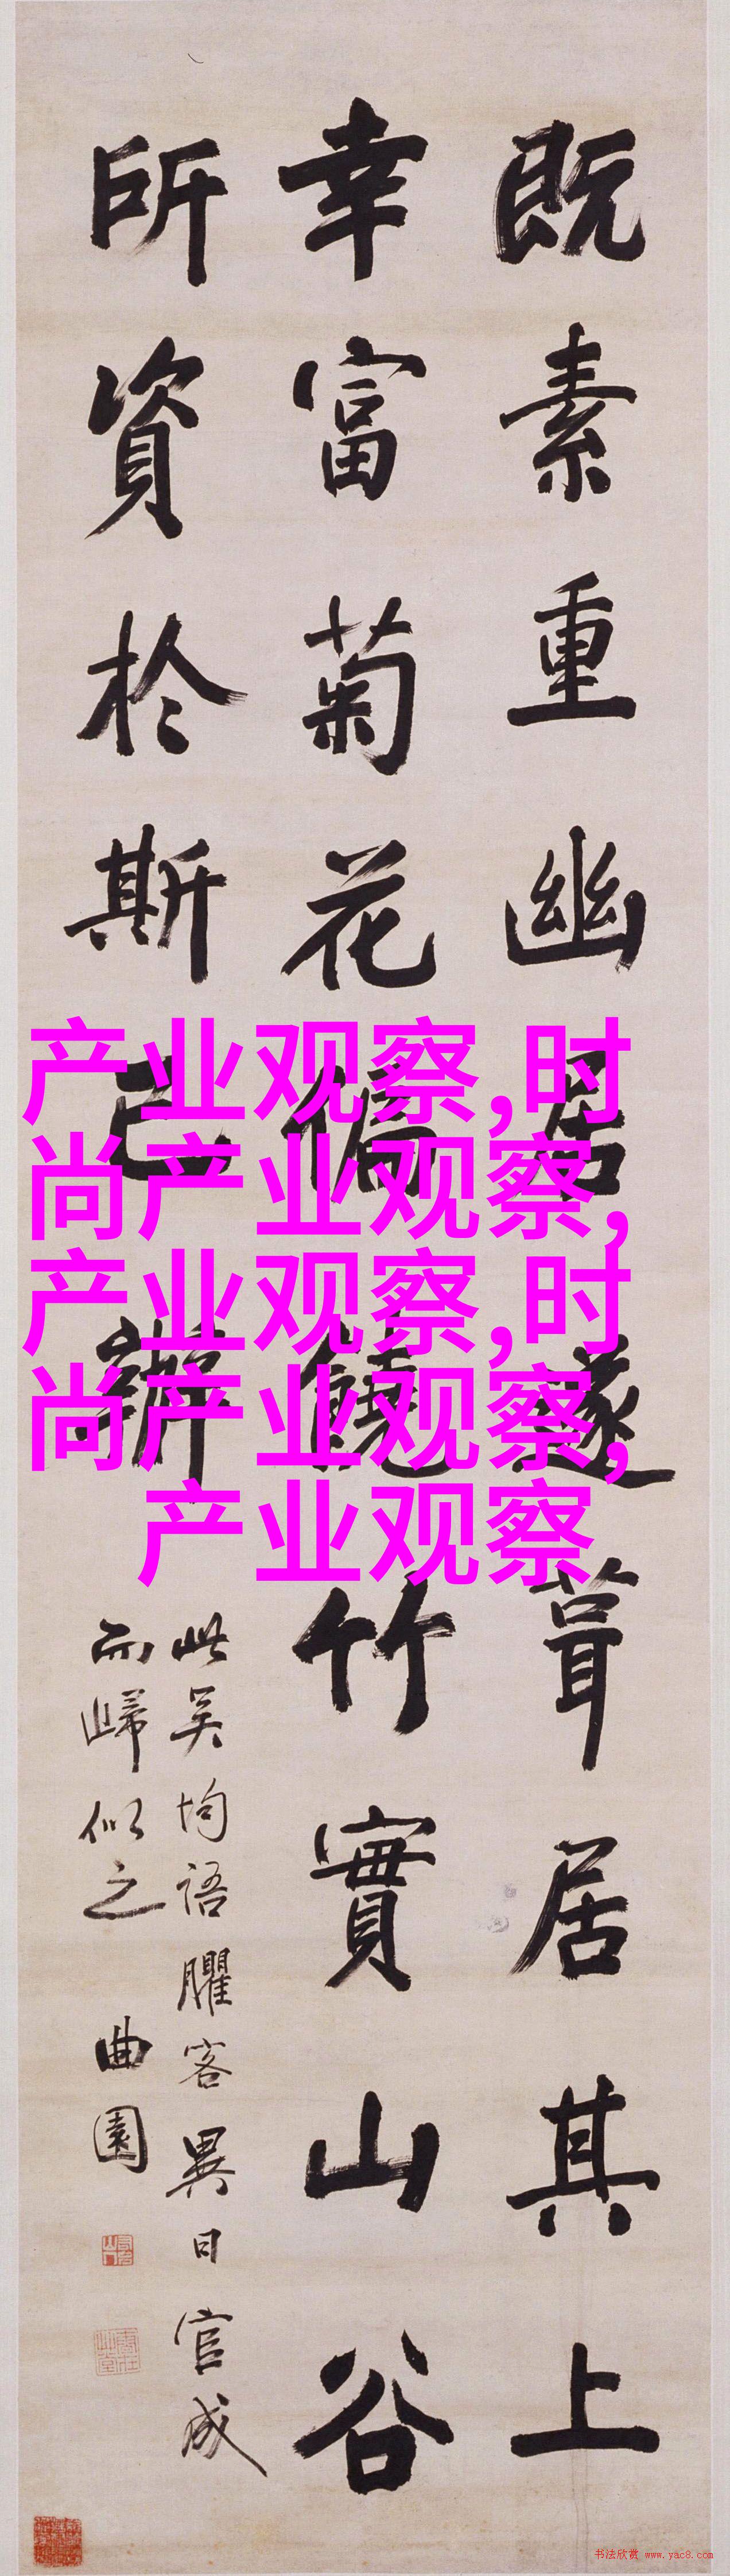 既素重幽居遂葺居其上
幸富菊花偏饒竹實山谷
所資於斯已辦
此吴均語臞客異日官成
而歸似之
曲園
产业观察,时
尚产业观察,
产业观察,时
尚产业观察,
产业观察
书法欣赏 www.yac8.com